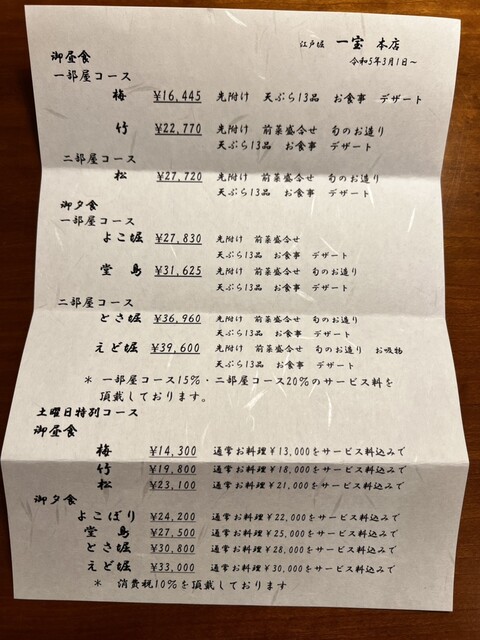 江戸堀 一宝 本店
令和5年3月1日～
御昼食
一部屋コース
梅 ¥16,445 先附け 天ぷら13品 お食事 デザート
竹 ¥22,770 先附け 前菜盛合せ 旬のお造り
天ぷら13品 お食事 デザート
二部屋コース
松 ¥27,720 先附け 前菜盛合せ 旬のお造り
天ぷら13品 お食事 デザート
御夕食
一部屋コース
よこ堀 ¥27,830 先附け 前菜盛合せ
天ぷら13品 お食事 デザート
堂島 ¥31,625 先附け 前菜盛合せ 旬のお造り
天ぷら13品 お食事 デザート
二部屋コース
とさ堀 ¥36,960 先附け 前菜盛合せ 旬のお造り
天ぷら13品 お食事 デザート
えど堀 ¥39,600 先附け 前菜盛合せ 旬のお造り お吸物
天ぷら13品 お食事 デザート
＊ 一部屋コース15%・二部屋コース20%のサービス料を
頂戴しております。
土曜日特別コース
御昼食
梅 ¥14,300 通常お料理¥13,000をサービス料込みで
竹 ¥19,800 通常お料理¥18,000をサービス料込みで
松 ¥23,100 通常お料理¥21,000をサービス料込みで
御夕食
よこぼり ¥24,200 通常お料理¥22,000をサービス料込みで
堂島 ¥27,500 通常お料理¥25,000をサービス料込みで
とさ堀 ¥30,800 通常お料理¥28,000をサービス料込みで
えど堀 ¥33,000 通常お料理¥30,000をサービス料込みで
＊ 消費税10%を頂戴しております